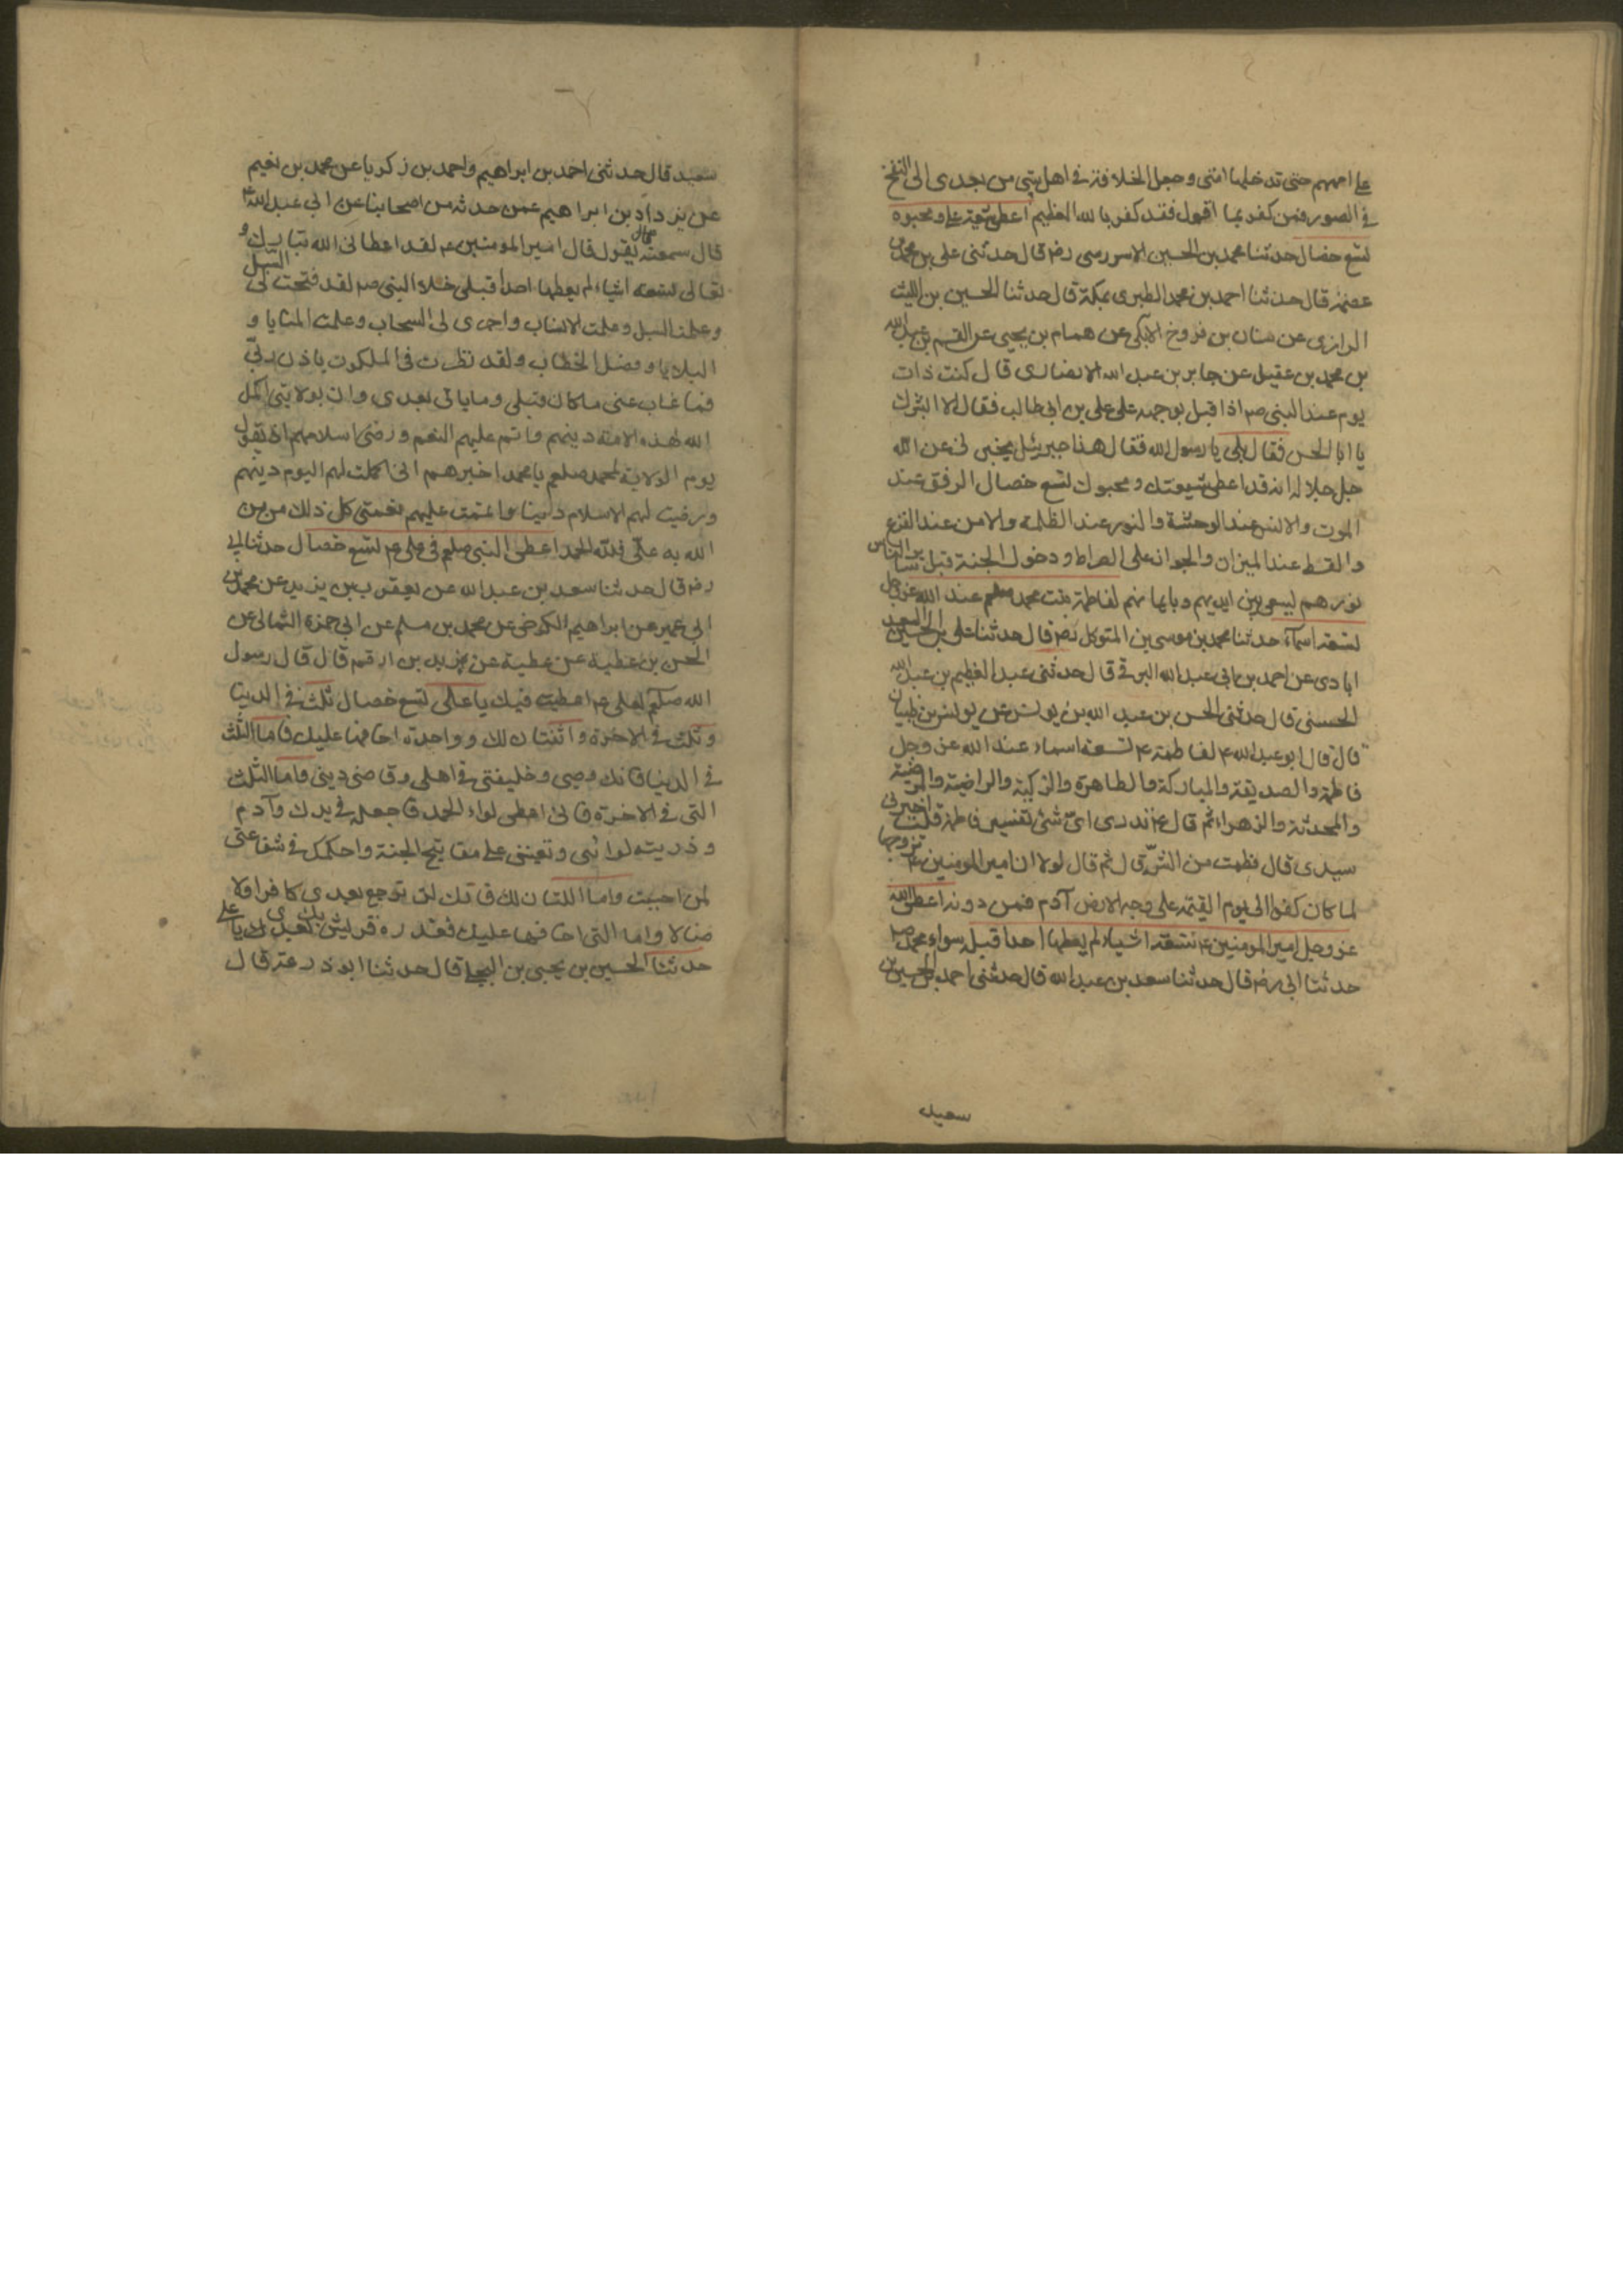 على اممهم حتى تدخلها امتى وجعل الخلافة فى اهل بيتى من بعدى الى النفخ
فى الصور فمن كفر بما اقول فقد كفر بالله العظيم اعطى شيعة على ومحبوه
تسع خصال حدثنا محمد بن الحسين الاسروسى رضه قال حدثنى على بن محمد بن
عصمة قال حدثنا احمد بن محمد الطبرى بمكة قال حدثنا الحسين بن الليث
الرازى عن سنان بن فروخ الابلى عن همام بن يحيى عن القسم بن عبد الله
بن محمد بن عقيل عن جابر بن عبد الله الانصارى قال كنت ذات
يوم عند النبى صم اذا قبل بوجهه على على بن ابى طالب فقال الا ابشرك
يا ابا الحسن فقال بلى يا رسول الله فقال هذا جبرئيل يخبرنى عن الله
جل جلاله انه قد اعطى شيعتك ومحبوك تسع خصال الرفق عند
الموت والانس عند الوحشة والنور عند الظلمة والامن عند الفزع
والقسط عند الميزان والجواز على الصراط ودخول الجنة قبل سائر الناس
نورهم يسعى بين ايديهم وبايمانهم لفاطمة بنت محمد صلعم عند الله عز وجل
تسعة اسماء حدثنا محمد بن موسى بن المتوكل رضه قال حدثنا على بن الحسين السعد
ابادى عن احمد بن ابى عبد الله البرقى قال حدثنى عبد العظيم بن عبد الله
الحسنى قال حدثنى الحسن بن عبد الله بن يونس عن يونس بن ظبيان
قال قال ابو عبد الله ع لفاطمة ع تسعة اسماء عند الله عز وجل
فاطمة والصديقة والمباركة والطاهرة والزكية والراضية والمرضية
والمحدثة والزهراء ثم قال ع تدرى اى شئ تفسير فاطمة قلت اخبرنى
سيدى قال فطمت من الشر قال ثم قال لولا ان امير المومنين ع تزوجها
لما كان كفو الى يوم القيمة على وجه الارض آدم فمن دونه اعطى الله
عز وجل امير المومنين ع تسعة اشياء لم يعطها احدا قبله سواء محمد صم
حدثنا ابى رضه قال حدثنا سعد بن عبد الله قال حدثنى احمد بن الحسين بن
سعيد
سعيد قال حدثنى احمد بن ابراهيم واحمد بن زكريا عن محمد بن نعيم
عن يزداد بن ابراهيم عمن حدثه من اصحابنا عن ابى عبد الله ع
قال سمعته يقول قال امير المومنين ع لقد اعطانى الله تبارك و
تعالى تسعة اشياء لم يعطها احدا قبلى خلا النبى صم لقد فتحت لى السبل
وعلمت الانساب واجرى لى السحاب وعلمت المنايا و
البلايا وفصل الخطاب ولقد نظرت فى الملكوت باذن ربى
فما غاب عنى ما كان قبلى وما ياتى بعدى وان بولايتى اكمل
الله لهذه الامة دينهم واتم عليهم النعم ورضى اسلامهم اذ يقول
يوم الولاية لمحمد صلعم يا محمد اخبرهم انى اكملت لهم اليوم دينهم
ورضيت لهم الاسلام دينا واتممت عليهم نعمتى كل ذلك من من
الله به على فلله الحمد اعطى النبى صلعم فى على ع تسع خصال حدثنا ابى
رضه قال حدثنا سعد بن عبد الله عن يعقوب بن يزيد عن محمد بن
ابى عمير عن ابراهيم الكرخى عن محمد بن مسلم عن ابى حمزة الثمالى عن
الحسن بن عطية عن عطية عن زيد بن ارقم قال قال رسول
الله صلعم لعلى ع اعطيت فيك يا على تسع خصال ثلث فى الدنيا
وثلث فى الاخرة واثنتان لك وواحدة اخافها عليك فاما الثلث
فى الدنيا فانك وصيى وخليفتى فى اهلى وقاضى دينى واما الثلث
التى فى الاخرة فانى اعطى لواء الحمد فاجعله فى يدك وآدم
وذريته لوائى وتعيننى على مفاتيح الجنة واحكمك فى شفاعتى
لمن احببت واما اللتان لك فانك لن ترجع بعدى كافرا ولا
ضالا واما التى اخافها عليك فغدرة قريش بك بعدى يا على
حدثنا الحسين بن يحيى بن البجلى قال حدثنا ابو ذرعة قال